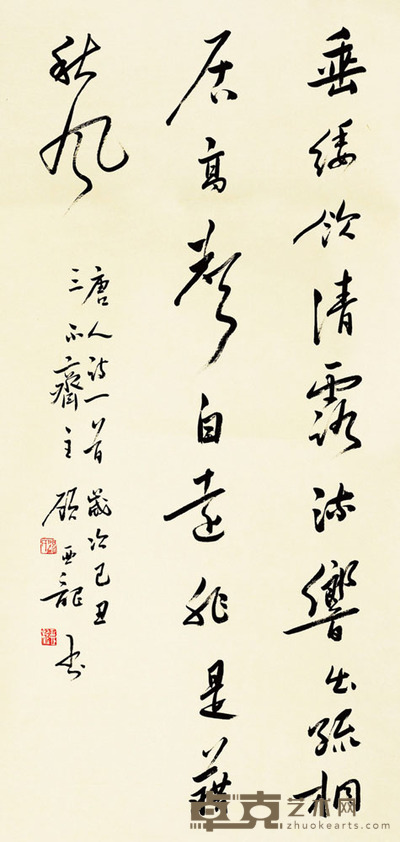 垂緌飲清露流響出疏桐
居高聲自遠非是藉
秋風
唐人詩一首歲次己丑
三不齋主顧亞龍書
卓克艺术网
zhuokearts.com